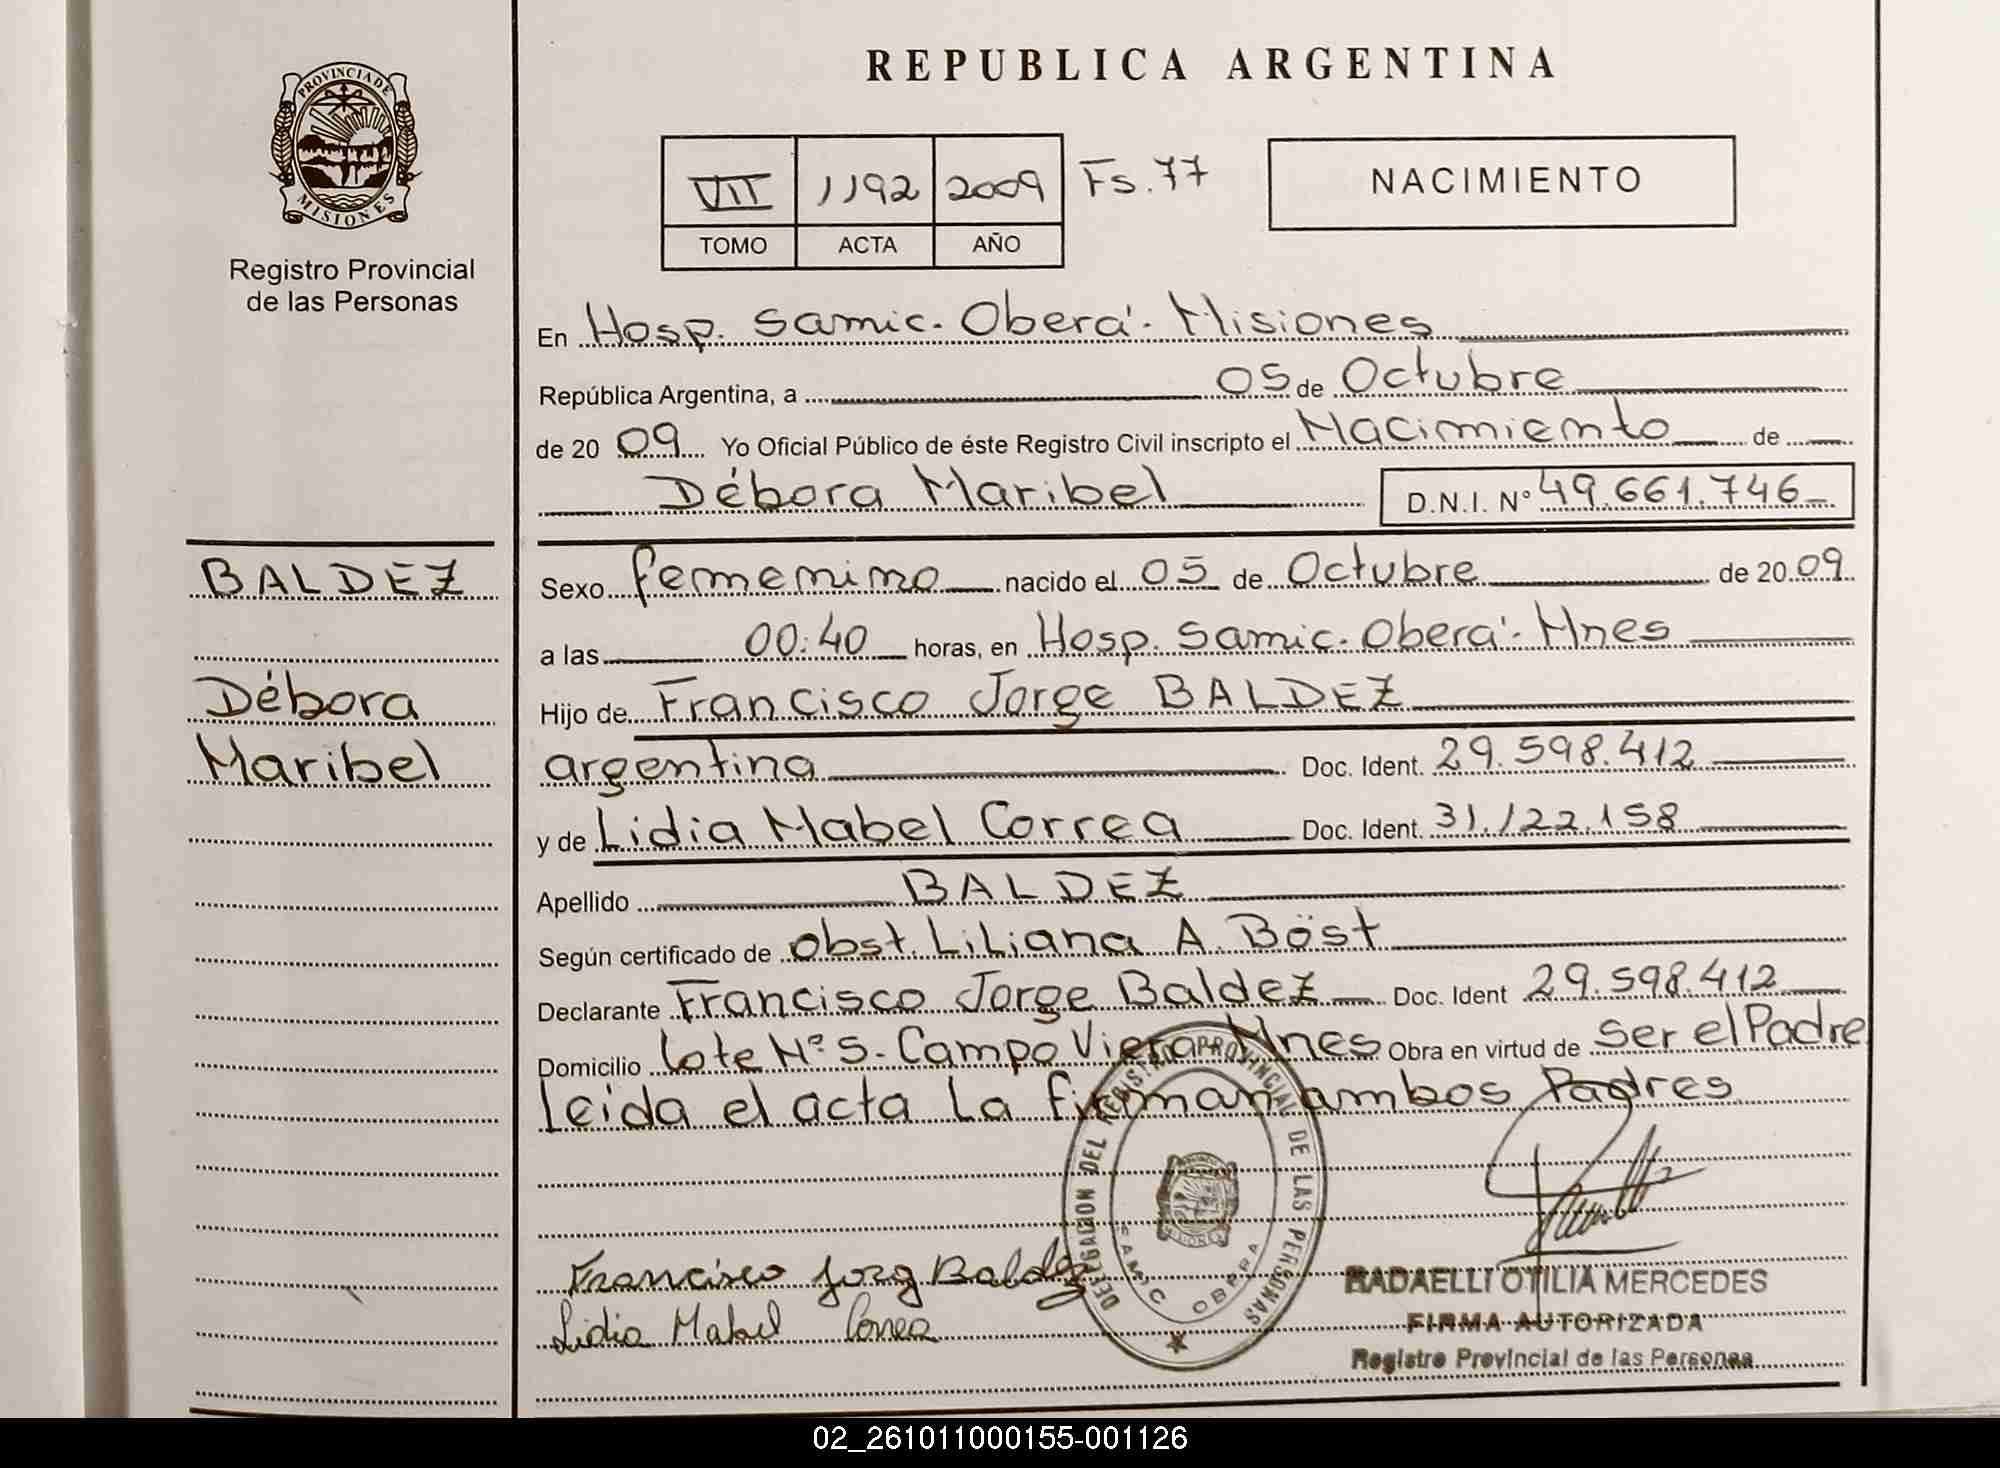 REPUBLICA ARGENTINA
PROVINCIA DE MISIONES
Registro Provincial
de las Personas
VII 1192 2009 Fs. 77
TOMO ACTA AÑO
NACIMIENTO
En Hosp. Samic. Oberá. Misiones
República Argentina, a 05 de Octubre
de 2009 Yo Oficial Público de éste Registro Civil inscripto el Nacimiento de
Débora Maribel D.N.I. Nº 49.661.746
BALDEZ
Débora
Maribel
Sexo femenino nacido el 05 de Octubre de 2009
a las 00:40 horas, en Hosp. Samic. Oberá. Mnes
Hijo de Francisco Jorge BALDEZ
argentina Doc. Ident. 29.598.412
y de Lidia Mabel Correa Doc. Ident. 31.122.158
Apellido BALDEZ
Según certificado de obst. Liliana A. Böst
Declarante Francisco Jorge Baldez Doc. Ident 29.598.412
Domicilio lote Nº 5. Campo Viera Mnes Obra en virtud de Ser el Padre
leida el acta la firman ambos Padres
DELEGACION DEL REGISTRO PROVINCIAL DE LAS PERSONAS
SAMIC OBERA
Francisco Jorg Baldez
Lidia Mabel Correa
RADAELLI OTILIA MERCEDES
FIRMA AUTORIZADA
Registro Provincial de las Personas
02_261011000155-001126